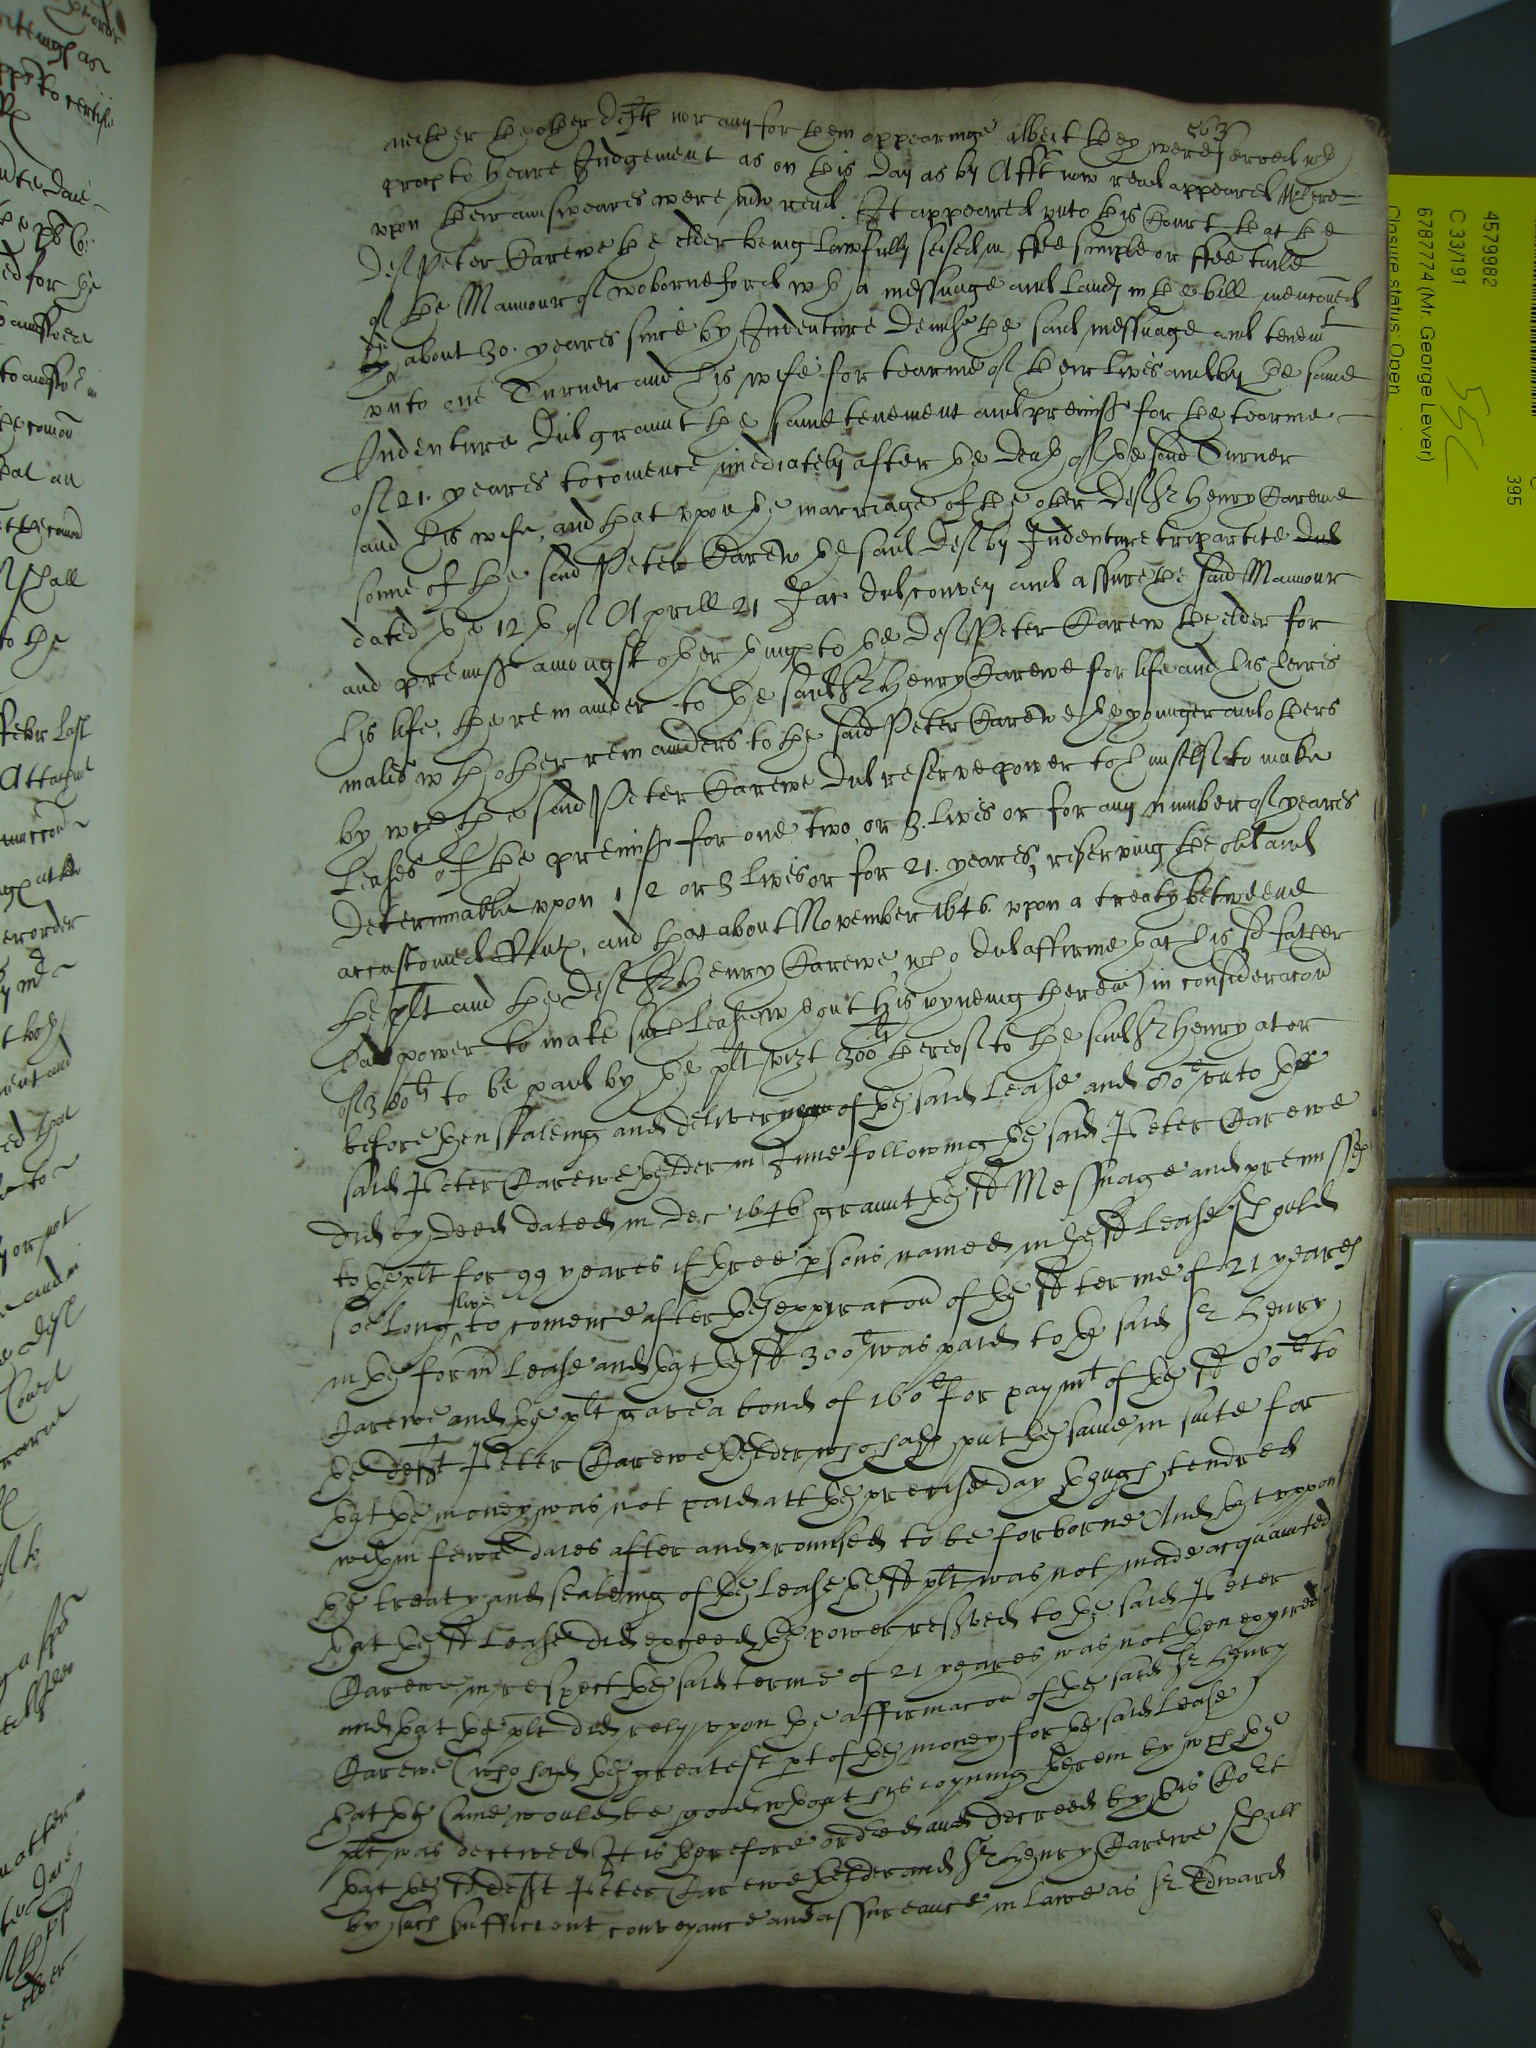 563
neither the other Defts nor any for them appearinge albeit they were served wth
proces to heare Judgement as on this Day as by Afft now read appeared Where=
upon their answeares were now read. It appeared unto this Court that the
Deft Peter Carewe the elder being lawfully seised in ffee simple or ffee taile
of the Mannour of woborneford wth a messuage and Lands in the bill menconed
about 30. yeares since by Indenture demise the said messuage and tenemt
unto one Turner and his wife for tearme of their lives and by the same
Indenture did graunt the same tenement and premiss for the tearme
of 21. yeares to comence imediately after the death of the said Turner
and his wife, and that upon the marriage of the other Deft Sr Henry Carewe
sonne of the said Peter Carew the said Deft by Indenture tripartite did
dated the 12th of Aprill 21 Jac did convey and assure the said Mannour
and premiss amongst other things to the Deft Peter Carew the elder for
his life, the remainder to the said Sr Henry Carewe for life and his heires
males wth other remainders to the said Peter Carewe the younger and others
by wch the said Peter Carewe did reserve power to himselfe to make
Leases of the premiss for one two or 3. lives or for any number of yeares
Determinable upon 1 2 or 3 lives or for 21. yeares, reserving the old and
accustomed Rent, and that about November 1646. upon a treaty betweene
the plt and the Deft Sr Henry Carewe, who did affirme that his sd father
had power to make such lease wthout his joyneing therein) in consideracon
of 380li to be paid by the plt vizt 300li thereof to the said Sr Henry at or
before then sealeing and delivery of the said Lease and 80li unto the
said Peter Carewe thelder in June following the said Peter Carewe
did by deed dated in Dec 1646 graunt the sd Messuage and premisses
to the plt for 99 yeares if three psons named in the sd Lease should
soe long live to comence after the expiracon of the sd terme of 21 yeares
in the formr Lease and that the sd 300li was paid to the said Sr Henry
Carewe and the plt gave a bond of 160li for paymt of the sd 80li to
the Deft Peter Carewe thelder who hath put the same in suite for
that the money was not paid att the precise day though tendred
wthin fewe daies after and promised to be forborne And that uppon
the treaty and sealeing of the Lease the sd plt was not made acquainted
that the sd Lease did exceed the power reserved to the said Peter
Carewe in respect the said terme of 21 yeares was not then expired
and that the plt did rely upon the affirmacon of the said Sr Henry
Carewe (who had the greatest pt of the money for the said Lease)
that the same would be good wthout his joyning therein by wch the
plt was deceived It is therefore ordered and decreed by this Cort
that the sd defft Peter Carewe thelder and Sr Henry Carewe shall
by such sufficient conveyance and assureance in lawe as Sr Edward
4579982
C 33/191
6787774 (Mr. George Lever)
Closure status: Open
55C
395